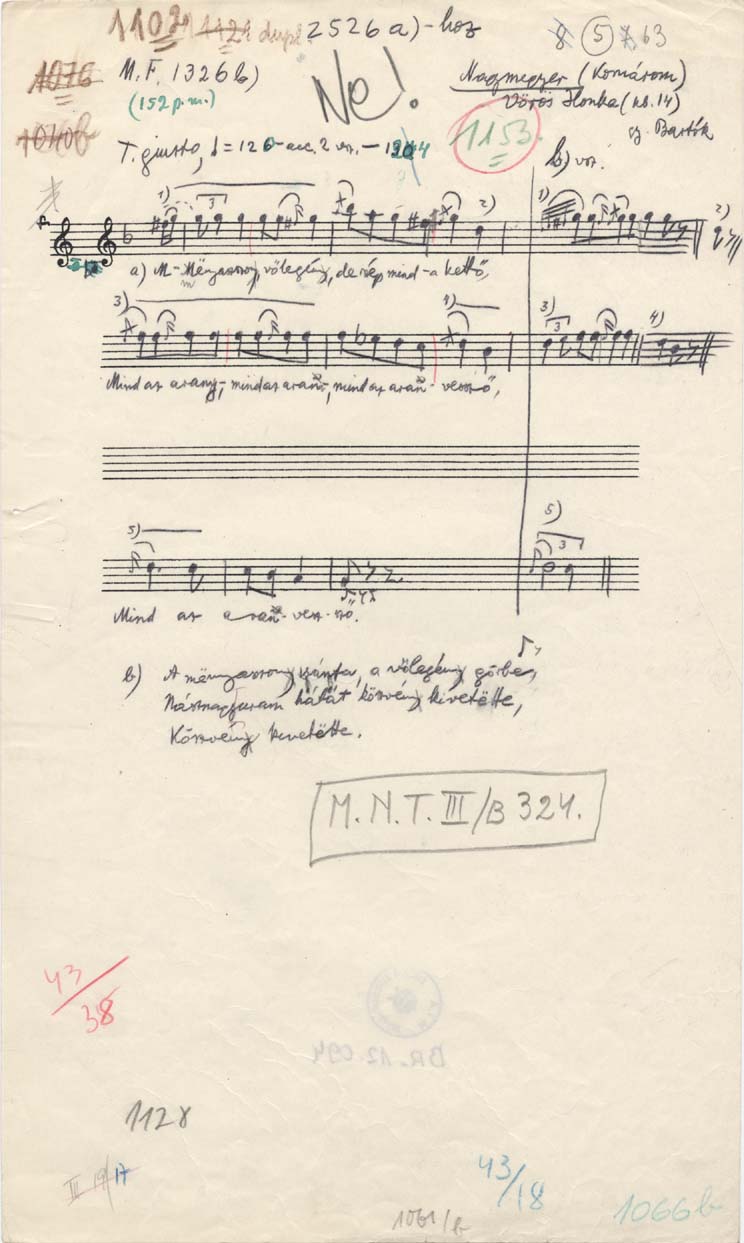 1102 1121 dupl. 2526 a)-hoz 8 5 7 63
1076 M.F. 1326 b) Ne! Nagymegyer (Komárom)
(152 p.m.) Vörös Ilonka (kb. 14)
1040b 1153 gy. Bartók
T. giusto, = 126 - acc. 2 vsz. — 144 b) vsz.
1) 3 2) 1) 2)
a) M- Mënyasszony, vőlegény, de szép mind-a kettő,
3) 4) 3) 3 4)
Mind az arany-, mind az arany-, mind az arany- vessző,
5) 5) 3
Mind az arany- vesz-sző.
b) A mënyasszony sánta, a vőlegény görbe,
Násznagyuram hálát köszvény kivetëtte,
Köszvény kivetëtte.
M.N.T. III/B 324.
43/38
BR. 12 094
1128
III 19/17
43/18
1061/b
1066b